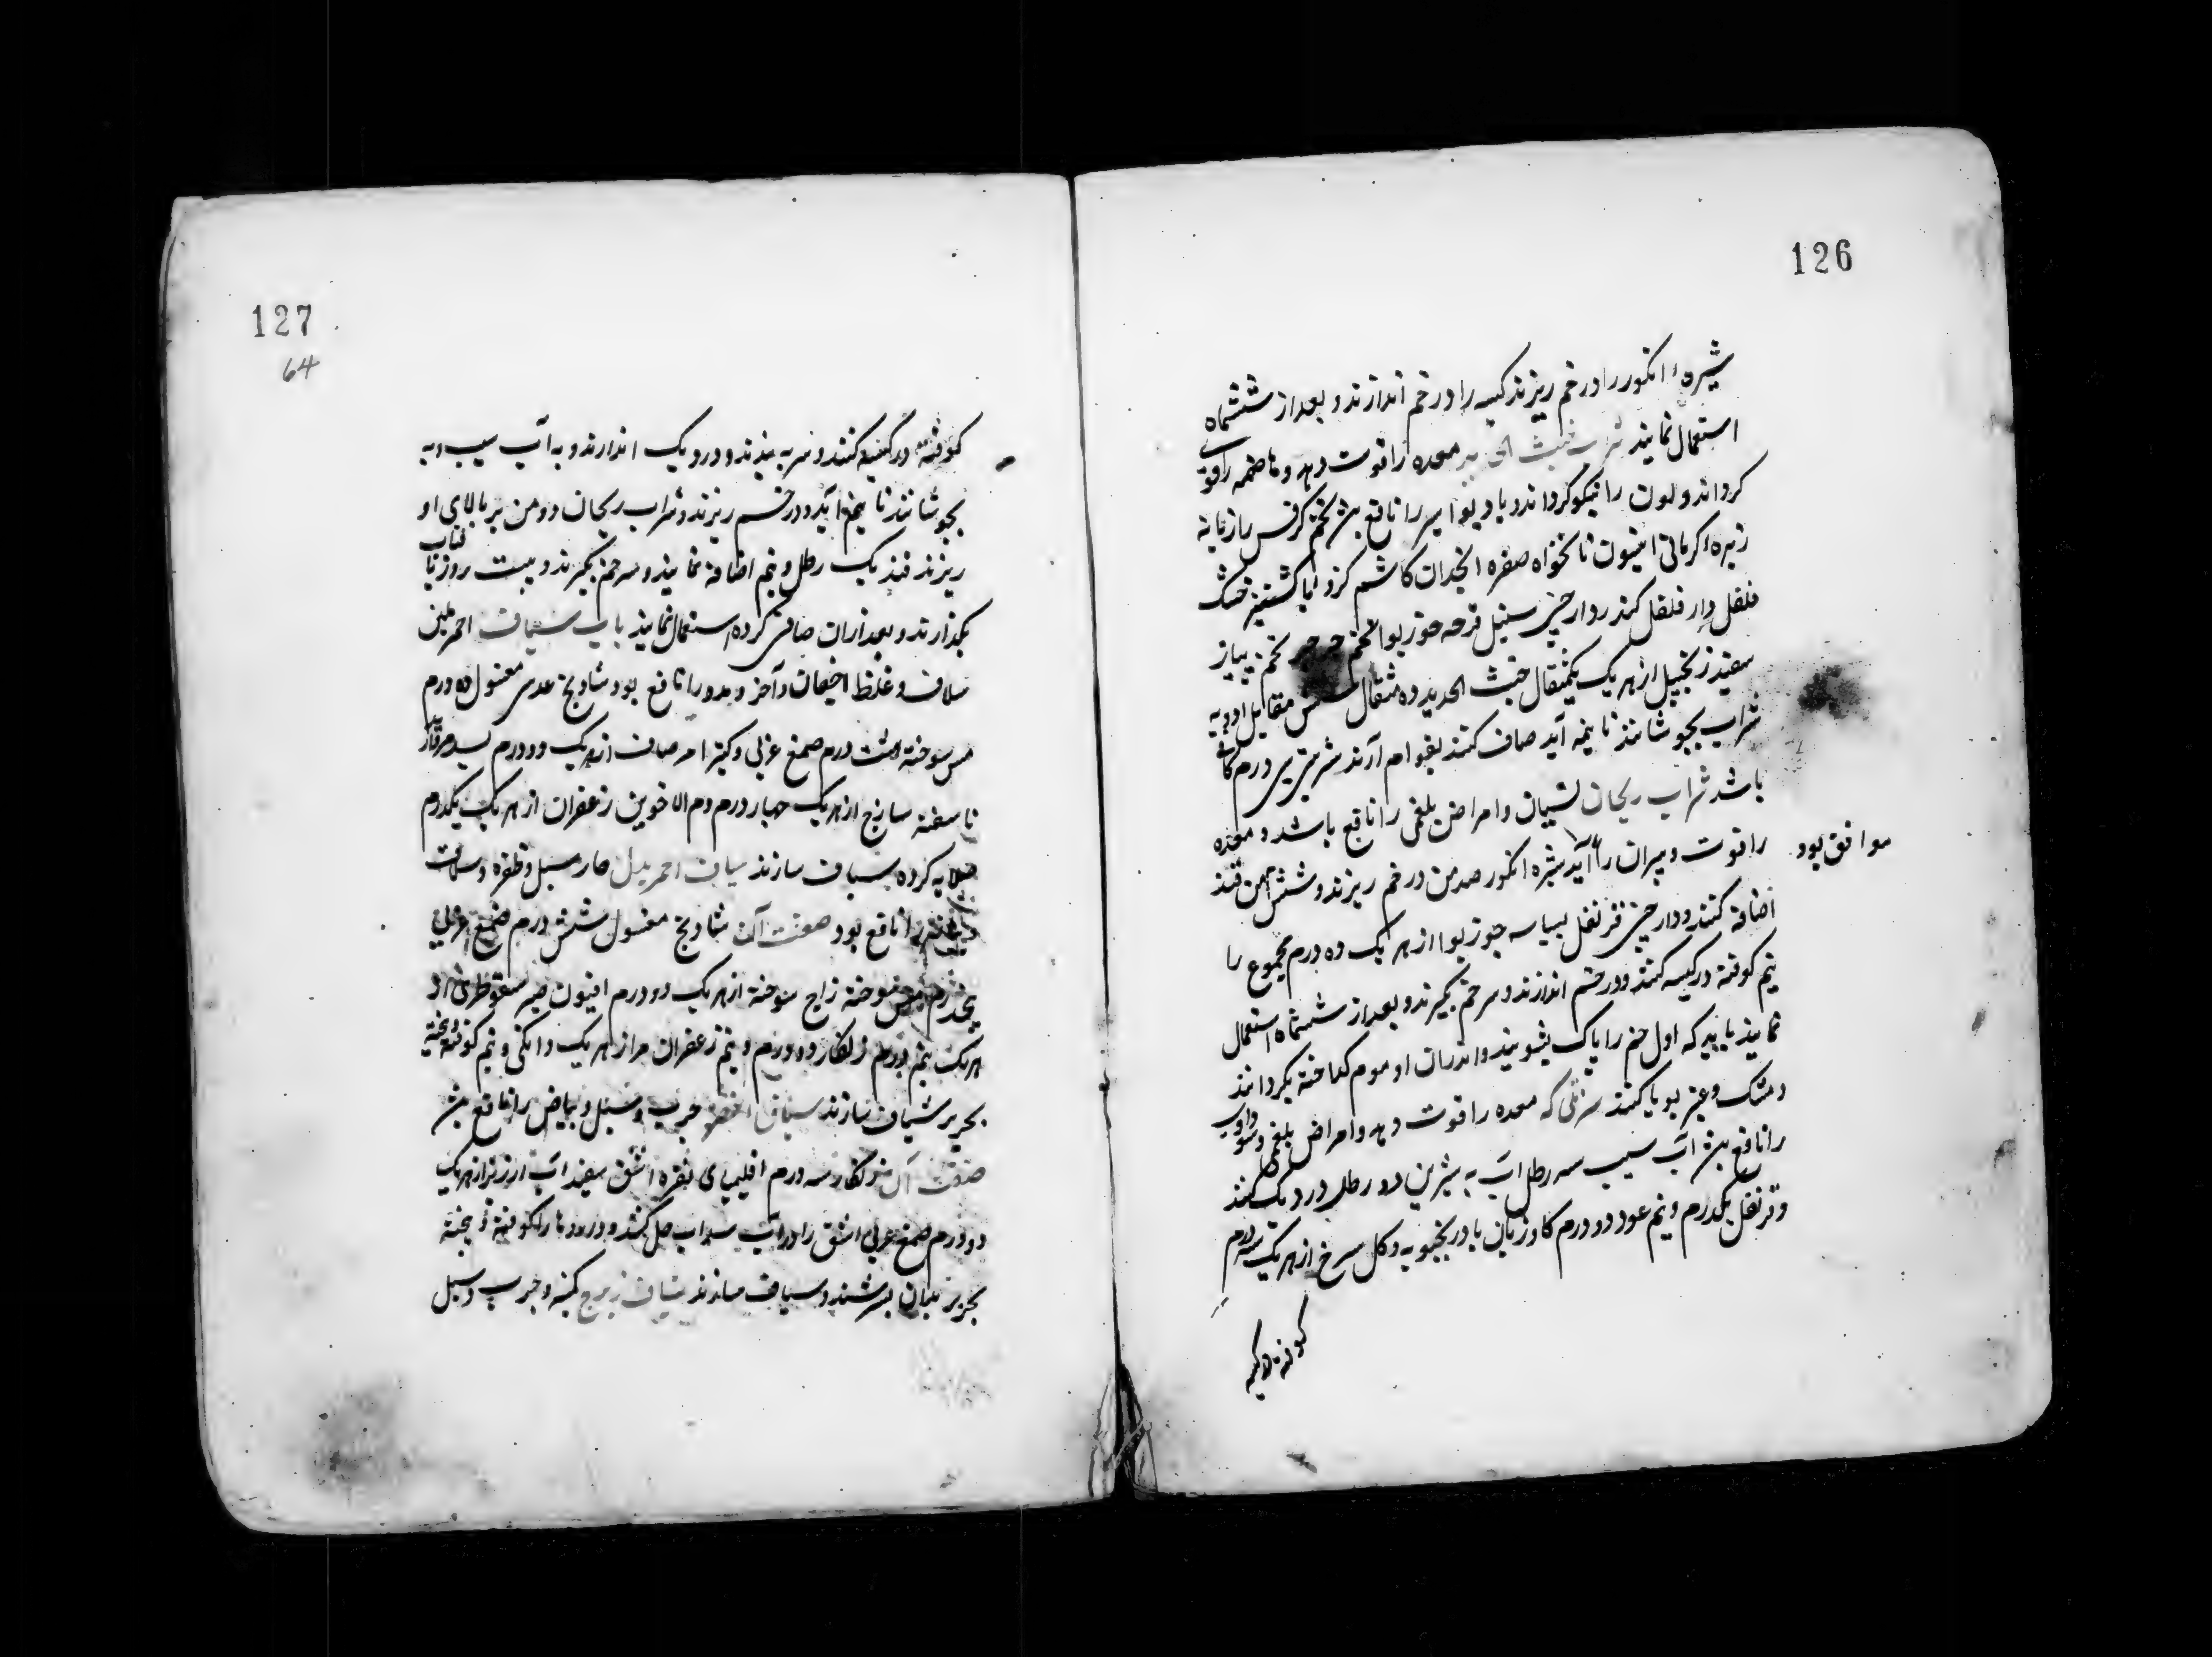 126
شیره انکور را در خم ریزند کیسه را در خم اندازند و بعد از ششماه
استعمال نمایند شراب خبث الحدید معده را قوت دهد و هاضمه را قوی
کرداند و لون را نیکو کرداند و باد بواسیر را نافع بود تخم کرفس رازیانه
زیره کرمانی انیسون نانخواه صعتر انجدان کاشم کرویا کشنیز خشک
فلفل دار فلفل کندر دارچینی سنبل قرفه جوزبوا تخم جرجیر تخم پیاز
سفید زنجبیل از هریک یکمثقال خبث الحدید ده مثقال مقابل ادویه
شراب بجوشانند تا بنیمه آید صاف کنند بقوام آرند شربتی سی درم کافی
باشد شراب ریحان نسیان و امراض بلغمی را نافع باشد و معده
را قوت و پیران را موافق بود شیره انکور صد من در خم ریزند و شش من قند
اضافه کنند و دارچینی قرنفل بسباسه جوزبوا از هریک ده درم مجموع را
نیم کوفته در کیسه کنند و در خم اندازند و سر خم بگیرند و بعد از ششماه استعمال
نمایند باید که اول خم را پاک بشویند و اندران او موم کداخته بکردانند
و مشک و عنبر بویا کنند که معده را قوت دهد و امراض بلغمی و سوداوی
را نافع بود آب سیب سه رطل آب به شیرین دو رطل در دیک کنند
و قرنفل یکدرم و نیم عود دو درم کاوزبان بادرنجبویه و کل سرخ از هریک سه درم
کوفته در کیسه
127
64
کوفته در کیسه کنند و سر به بندند و در دیک اندازند و به آب سیب و به
بجوشانند تا بنیمه آید و در خم ریزند و شراب ریحان دو من بر بالای او
ریزند قند یک رطل و نیم اضافه نمایند و سر خم بگیرند و بیست روز در آفتاب
بگذارند و بعد از آن صافی کرده استعمال نمایند باب شیاف احمر لین
سلاق و غلظ اجفان و آخر رمد را نافع بود شادنج عدسی مغسول ده درم
مس سوخته هشت درم صمغ عربی و کتیرا مر صاف از هریک دو درم بسد
ناسفته ساذج از هریک چهار درم دم الاخوین زعفران از هریک یکدرم
کرده شیاف سازند شیاف احمر حار سبل و ظفره و سلاق
را نافع بود صفت آن شادنج مغسول شش درم صمغ عربی
پنجدرم مس سوخته زاج سوخته از هریک دو درم افیون صبر سقوطری از
هریک نیم درم زنکار دو درم و نیم زعفران مر از هریک دانکی و نیم کوفته و بیخته
بحریر شیاف سازند شیاف اخضر جرب و سبل و بیاض را نافع بود
صفت آن زنکار سه درم اقلیمیای نقره اشق سفیداب ارزیز از هریک
دو درم صمغ عربی اشق را در آب سداب حل کنند و داروها را کوفته و بیخته
بحریر بدان بسرشند و شیاف سازند شیاف کهنه و جرب و سبل